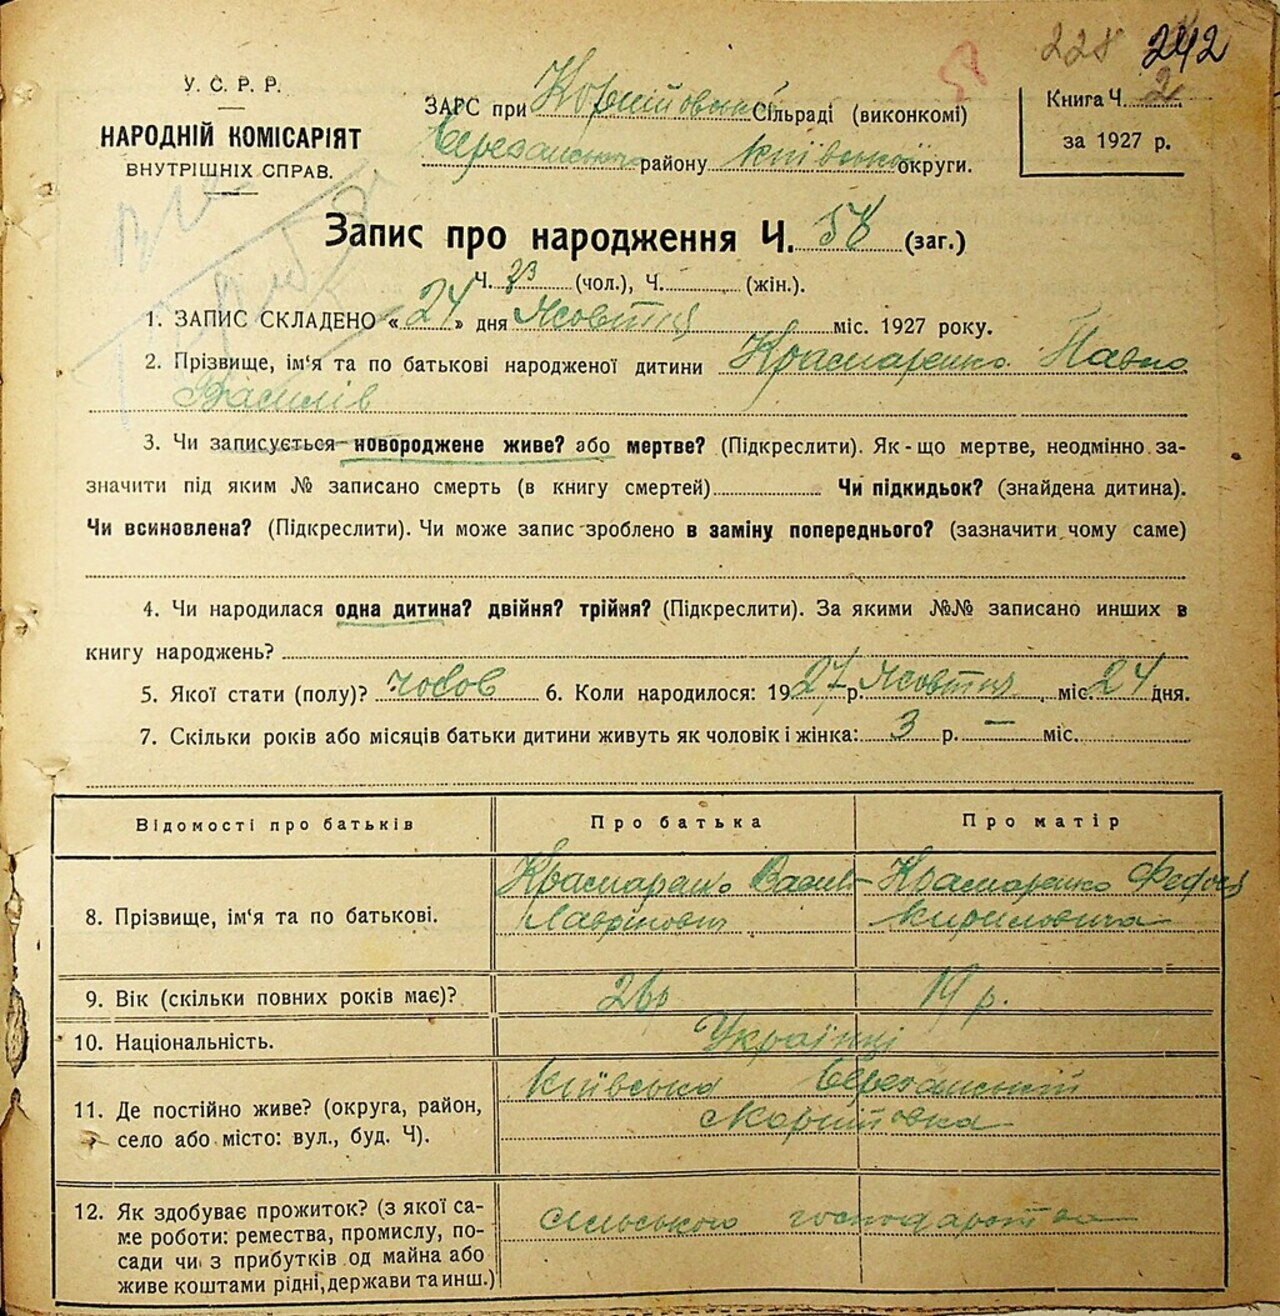 58 228 242
У. С. Р. Р.
НАРОДНІЙ КОМІСАРІЯТ
ВНУТРІШНІХ СПРАВ.
ЗАРС при Сільраді (виконкомі)
району Київської округи.
Книга Ч. 2
за 1927 р.
Запис про народження Ч. 58 (заг.)
Ч. 33 (чол.), Ч. (жін.).
1. ЗАПИС СКЛАДЕНО «24» дня Жовтня міс. 1927 року.
2. Прізвище, ім'я та по батькові народженої дитини Крамаренко Павло
Василів
3. Чи записується новороджене живе? або мертве? (Підкреслити). Як-що мертве, неодмінно за-
значити під яким № записано смерть (в книгу смертей) Чи підкидьок? (знайдена дитина).
Чи всиновлена? (Підкреслити). Чи може запис зроблено в заміну попереднього? (зазначити чому саме)
4. Чи народилася одна дитина? двійня? трійня? (Підкреслити). За якими №№ записано инших в
книгу народжень?
5. Якої стати (полу)? чолов 6. Коли народилося: 1927 р. Жовтня міс. 24 дня.
7. Скільки років або місяців батьки дитини живуть як чоловік і жінка: 3 р. — міс.
Відомості про батьків Про батька Про матір
8. Прізвище, ім'я та по батькові. Крамаренко Василь Крамаренко
Лаврінович Кириловна
9. Вік (скільки повних років має)? р.
10. Національність. Українці
11. Де постійно живе? (округа, район, Київська Березанський
село або місто: вул., буд. Ч).
12. Як здобуває прожиток? (з якої са-
ме роботи: ремества, промислу, по- сільського господарства
сади чи з прибутків од майна або
живе коштами рідні, держави та инш.)